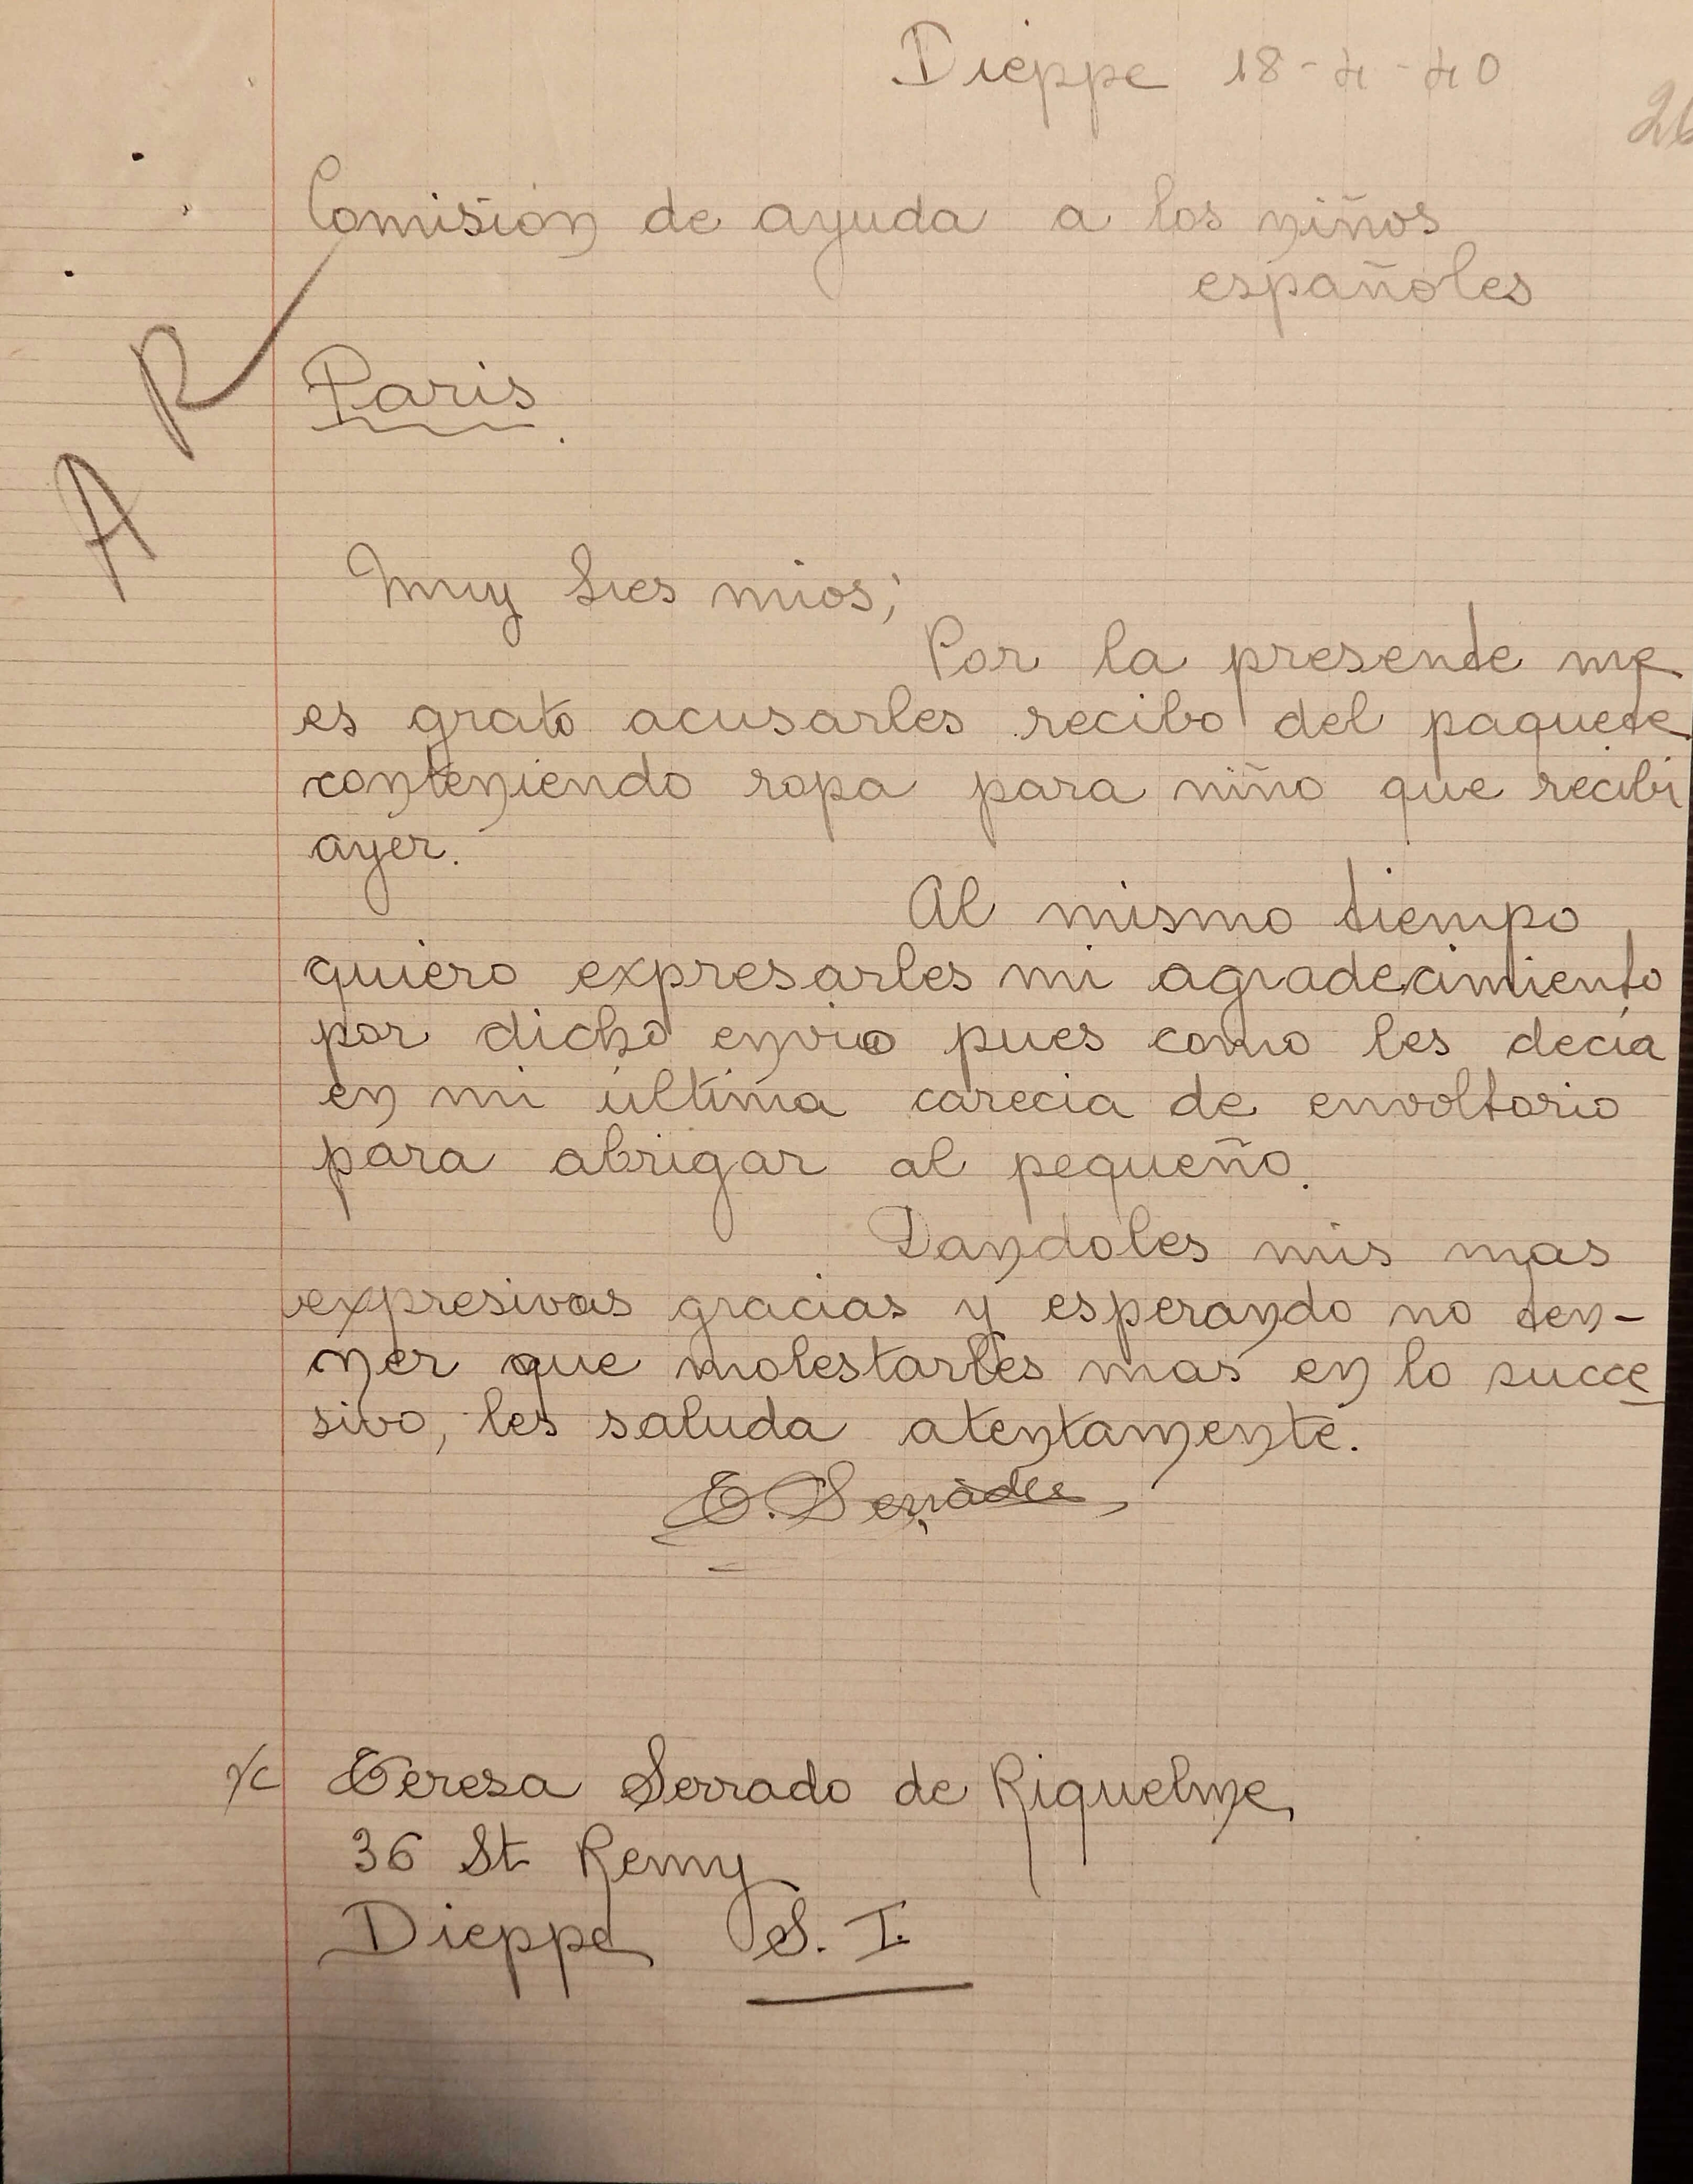 Dieppe 18-4-40
26
Comisión de ayuda a los niños
españoles
Paris.
A R
Muy Sres mios;
Por la presente me
es grato acusarles recibo del paquete
conteniendo ropa para niño que recibi
ayer.
Al mismo tiempo
quiero expresarles mi agradecimiento
por dicho envio pues como les decía
en mi última carecia de envoltorio
para abrigar al pequeño.
Dandoles mis mas
expresivas gracias y esperando no ten-
ner que molestarles mas en lo succe
sivo, les saluda atentamente.
T. Serrado
Teresa Serrado de Riquelme
36 St Remy
Dieppe S. I.